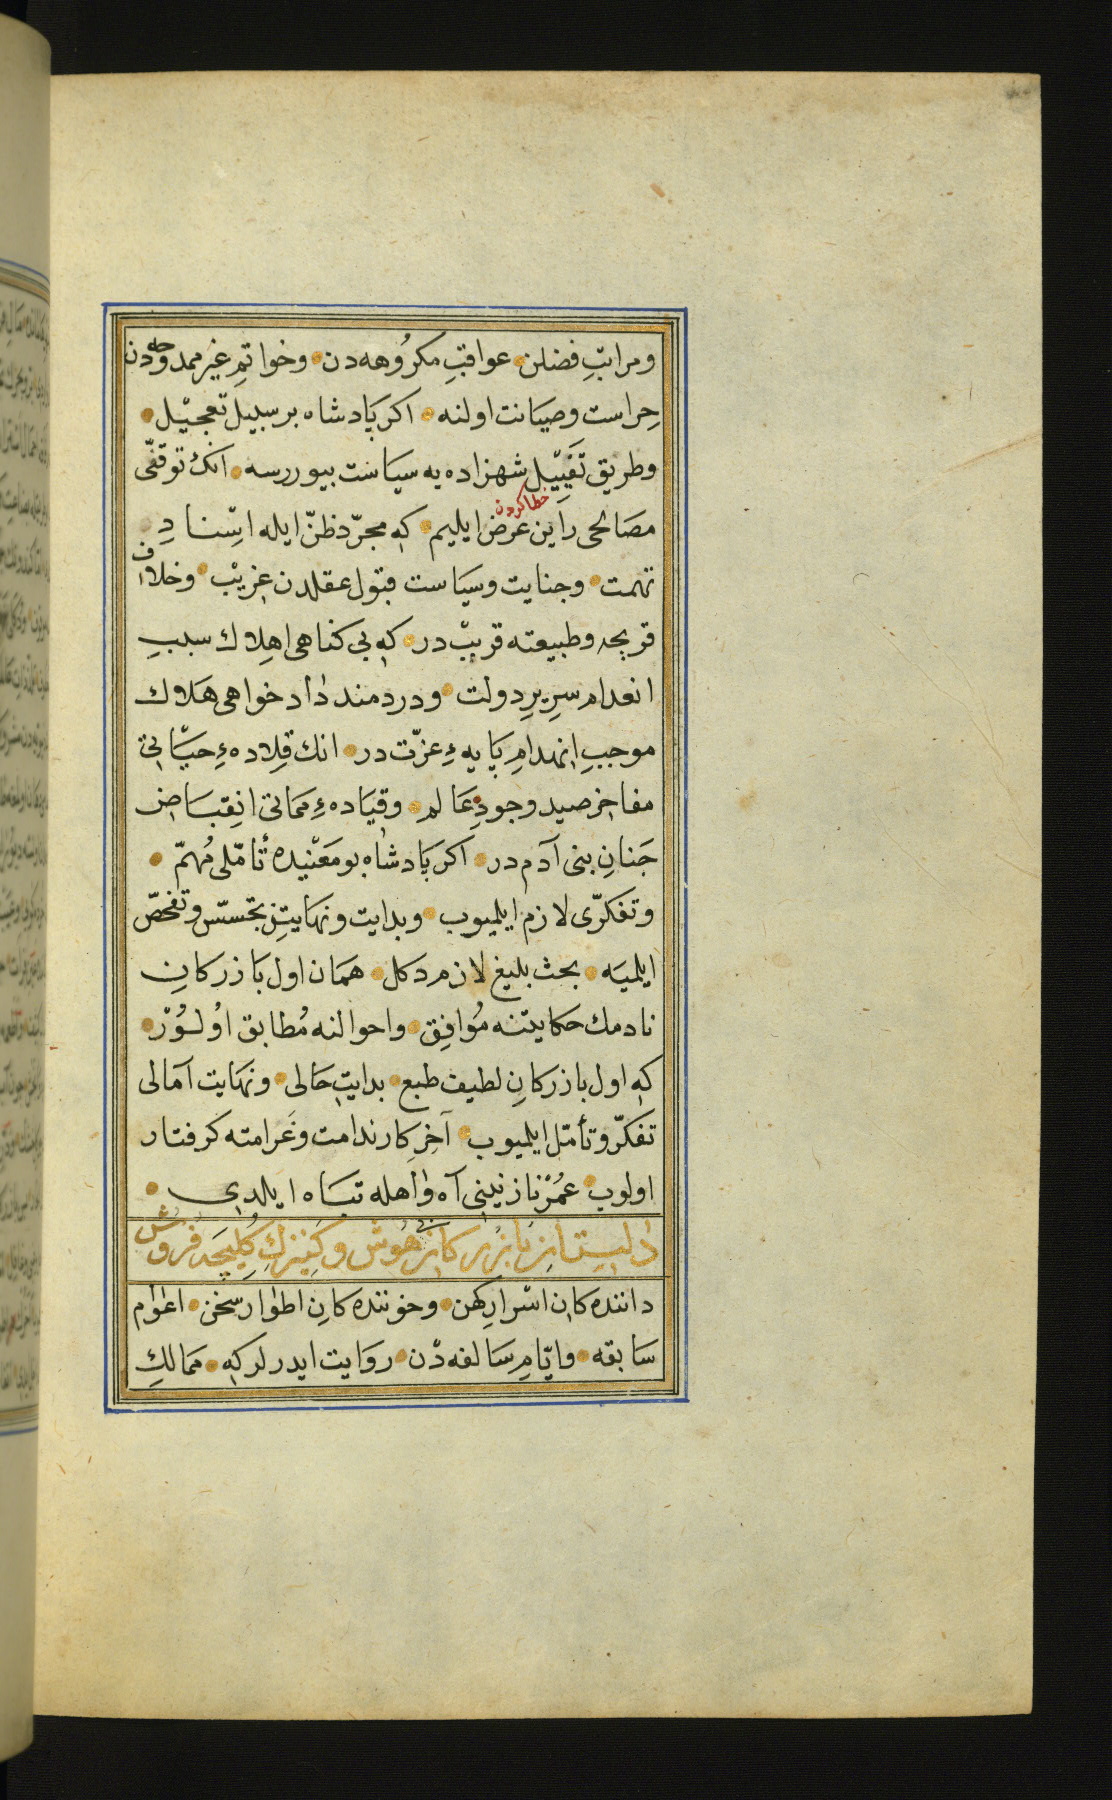 ومراتبِ فضلن عواقبِ مكرُوهه دن وخواتمِ غير ممدوحه دن
حِراست وصيانت اولنه اكر پادشاه بر سبيل تعجيْل
وطريق تَفْيِيْل شهزاده يه سياست بيوررسه انك توقفّى
خطا كردن
مصَالحى راين عرض ايليم كه مجرّد ظنّ ايله اسْناد
تهمت وجنايت وسيَاست قبول عقلدن غريبْ وخلاف
قريحه وطبيعته قريبْ در كه بى كناهى اهلاك سببِ
انعدام سرِيرِ دولت ودردمند دادخواهى هَلاك
موجبِ انهدامِ پَايه ءِ عزّت در انك قِلاده ءِ حيَاتى
مفاخر صيد وجودِ عَالم وقيَاده ءِ مماتى انِقبَاض
جَنانِ بنى آدم در اكر پَادشاه بو مَعْنيده تأمّلى مُهمّ
وتفكرّى لازم ايلميوب وبدايت ونهايتِن تجسسّ وتفحصّ
ايلميه بحث بليغ لازم دكل همَان اول بَازركانِ
نادمك حكايتنه مُوافِق واحوالنه مُطابق اوُلوُرْ
كه اول بازركانِ لطيف طبع بدايتِ حَالى ونهايت آمالى
تفكرّ وتأمّل ايلميوب آخِرِ كار ندامت وغَرامته كرفتار
اولوب عُمْرْ نازنينى آه واهله تبَاه ايلدى
داستان بازركان خوش وكنيزك كليجه فروش
داننده كان اسْرار كهن وخواننده كانِ اطوارِ سخن اعوام
سَابقه وايّامِ سَالفه دْن روَايت ايدرلر كه ممالكِ